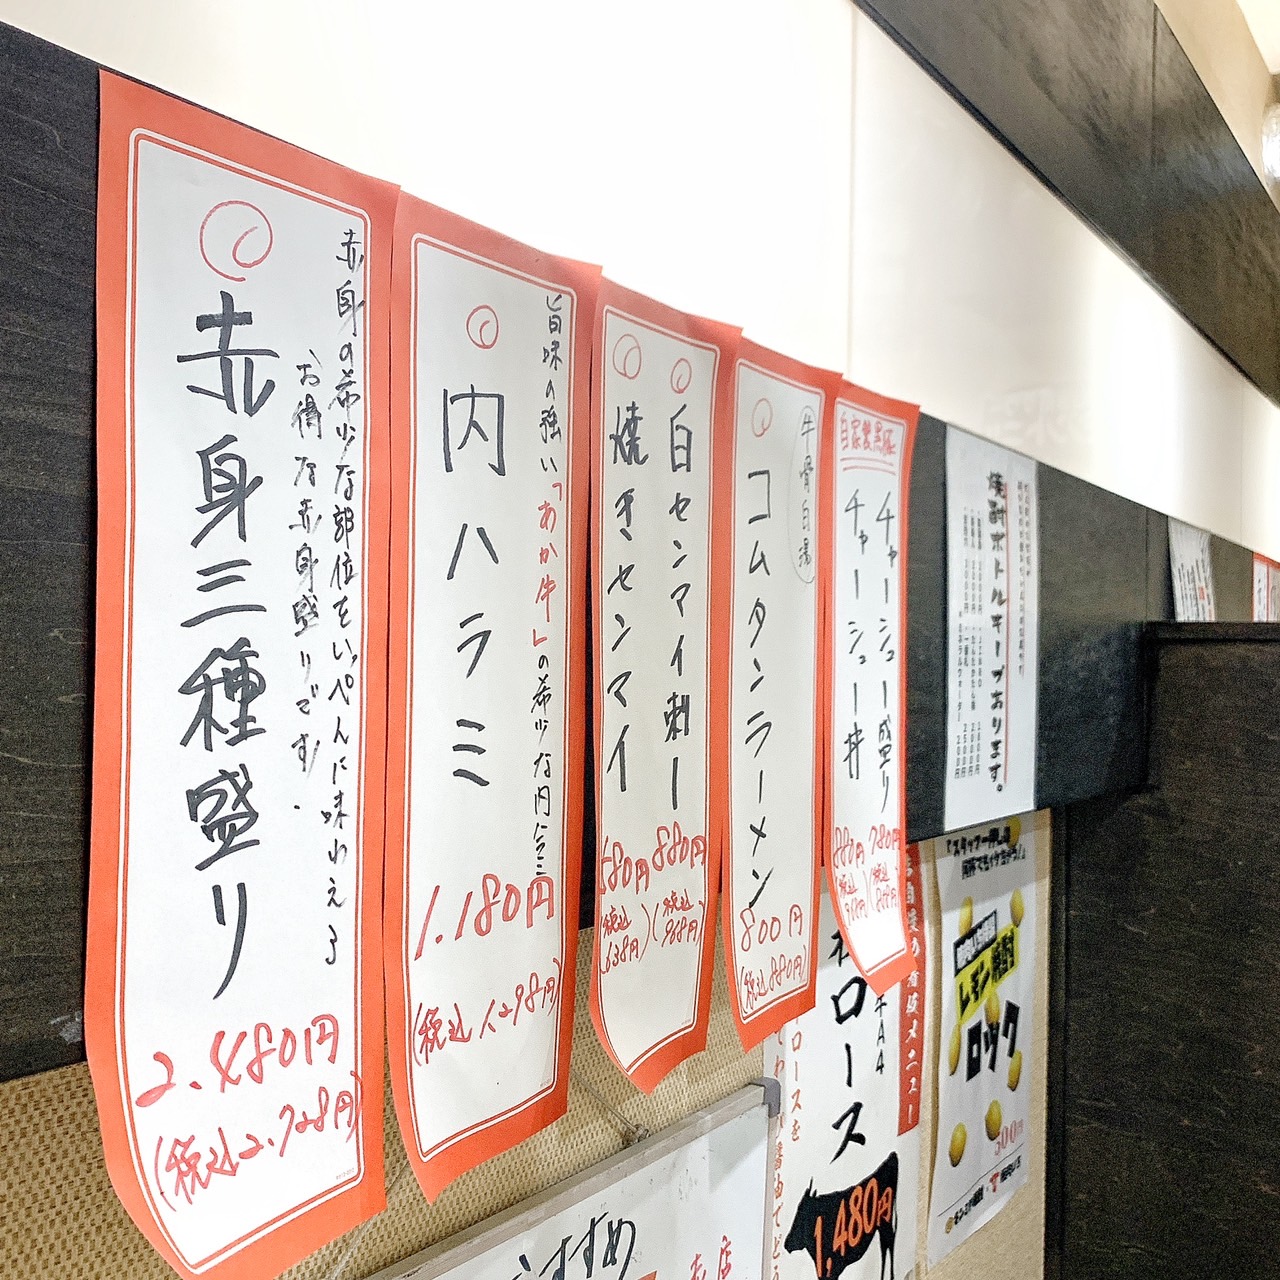 赤身の希少な部位をいっぺんに味わえる
お得な赤身盛りです!
赤身三種盛り
2.480円
(税込2.728円)
旨味の強い「あか牛」の希少な内ハラミ
内ハラミ
1.180円
(税込1.298円)
白センマイ刺し
880円
(税込968円)
焼きセンマイ
580円
(税込638円)
牛骨白湯
コムタンラーメン
800円
(税込880円)
自家製黒豚
チャーシュー盛り
780円
チャーシュー丼
880円
焼酎ボトルキープあります。
ロース
1,480円
「スタッフ一押し!
何杯でもイケます!」
レモン焼酎
ロック
500円
おすすめ